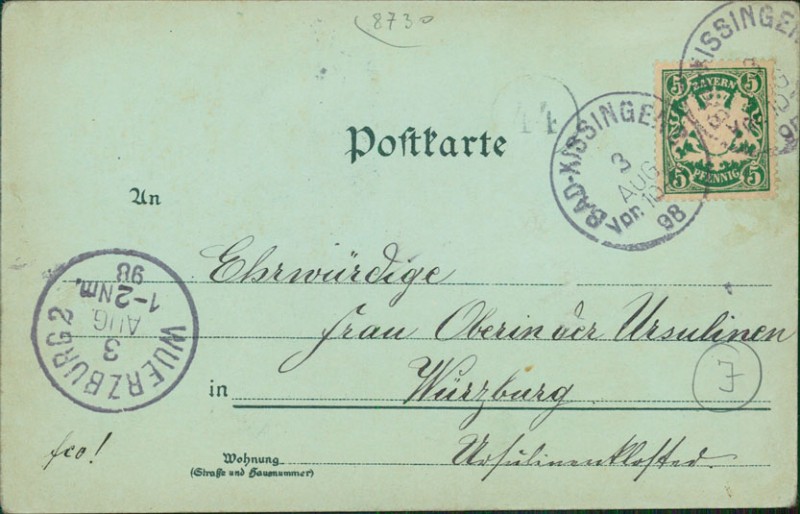 8730
44
Postkarte
BAD-KISSINGEN
3
AUG
Vor. 10
98
KISSINGEN
98
5 BAYERN 5
5 PFENNIG 5
An
Ehrwürdige
Frau Oberin der Ursulinen
in Würzburg
WUERZBURG 2
3
AUG.
1-2 Nm.
98
J
fco!
Wohnung
(Straße und Hausnummer)
Ursulinenkloster.